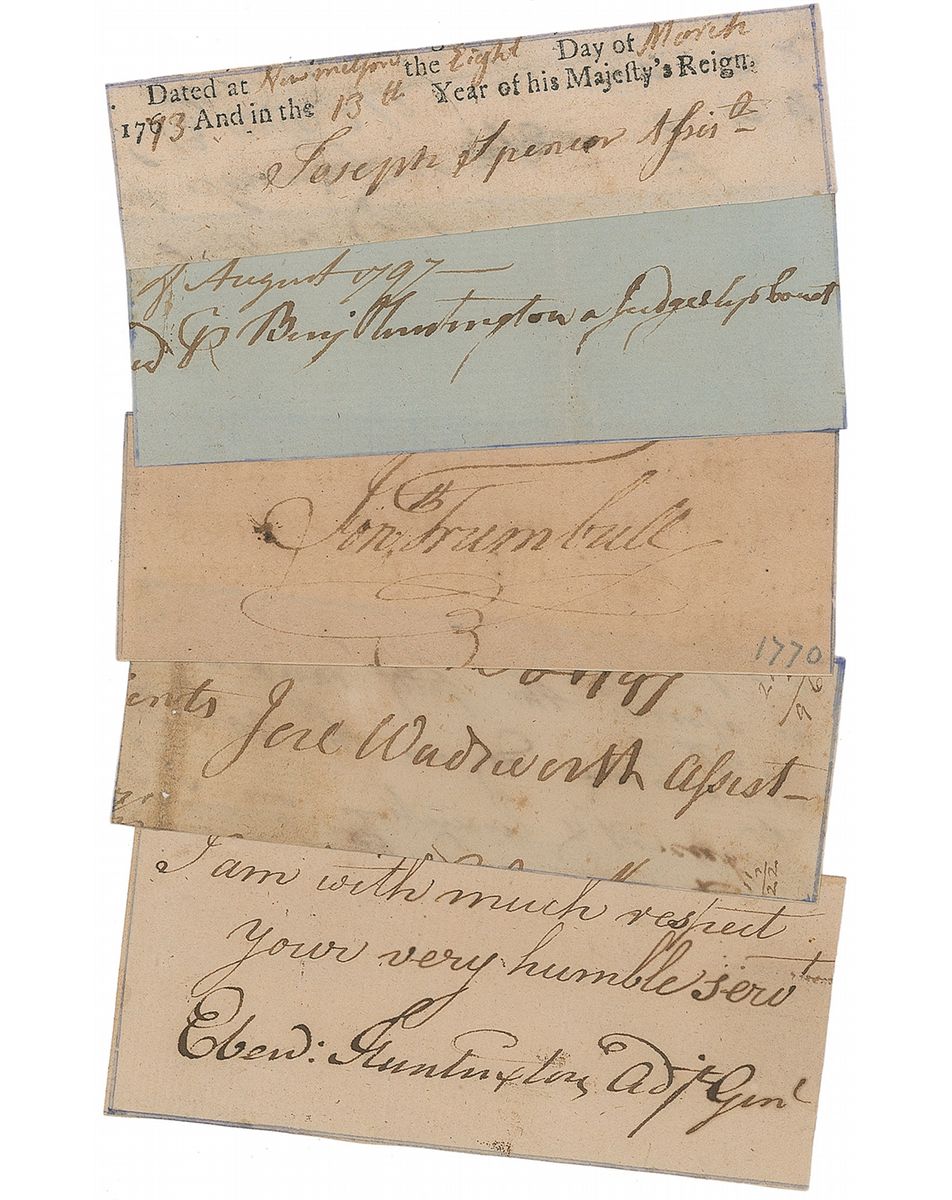 Dated at the Eight Day of March
1773 And in the 13th Year of his Majesty's Reign.
Joseph Spencer Assist
of August 1797
Benj Huntington a Judge
Jonth Trumbull
3
1770
ents Jere Wadsworth Assist
I am with much respect
your very humble servt
Ebenr: Huntington, Adjt Genl